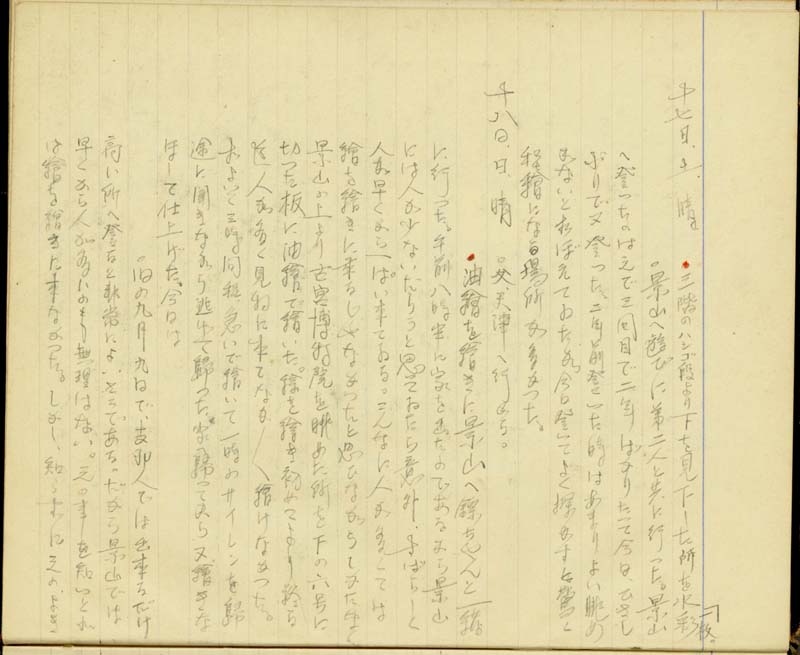 十七日、土、晴 ・三階のハシゴ段より下を見下した所を水彩「一枚」
。景山へ遊びに弟二人と共に行った。景山
へ登ったのはこれで三回目で二年ばかりたって今日、ひさし
ぶりで又登った。二年前登いた時はあまりよい眺め
もないと おぼえておたが今日登いてよく探がすと驚く
程繪になる場所が多かった。
十八日、日、晴 。父、天津へ行かる。
・油繪を繪きに景山へ鐐ちゃんと一緒
に行った。午前八時半に家を出たのであるから景山
には人が少ないだらうと思っておたら意外、すばらしく
人が早くから一ぱい来ておる。こんなに人が多くては
繪を繪きに来るじゃなかったと思ひながらしかたなく
景山の上より古宮博物院を眺めた所を下の六号に
切った板に油繪で繪いた。繪を繪き初めてより終る
迄人が多く見物に来てなか〱繪けなかった。
およそ三時間程急いで繪いて一時のサイレンを歸
途に聞きながら逃げて歸った。家へ歸ってから又繪きな
ほして仕上げた。今日は
。旧の九月九日で、支那人では出来るだけ
高い所へ登ると非常によいそうである。だから景山では
早くから人が多いのも無理はない。この事を知いとれ
ば繪を繪きに来なかった。しかし、知らずに